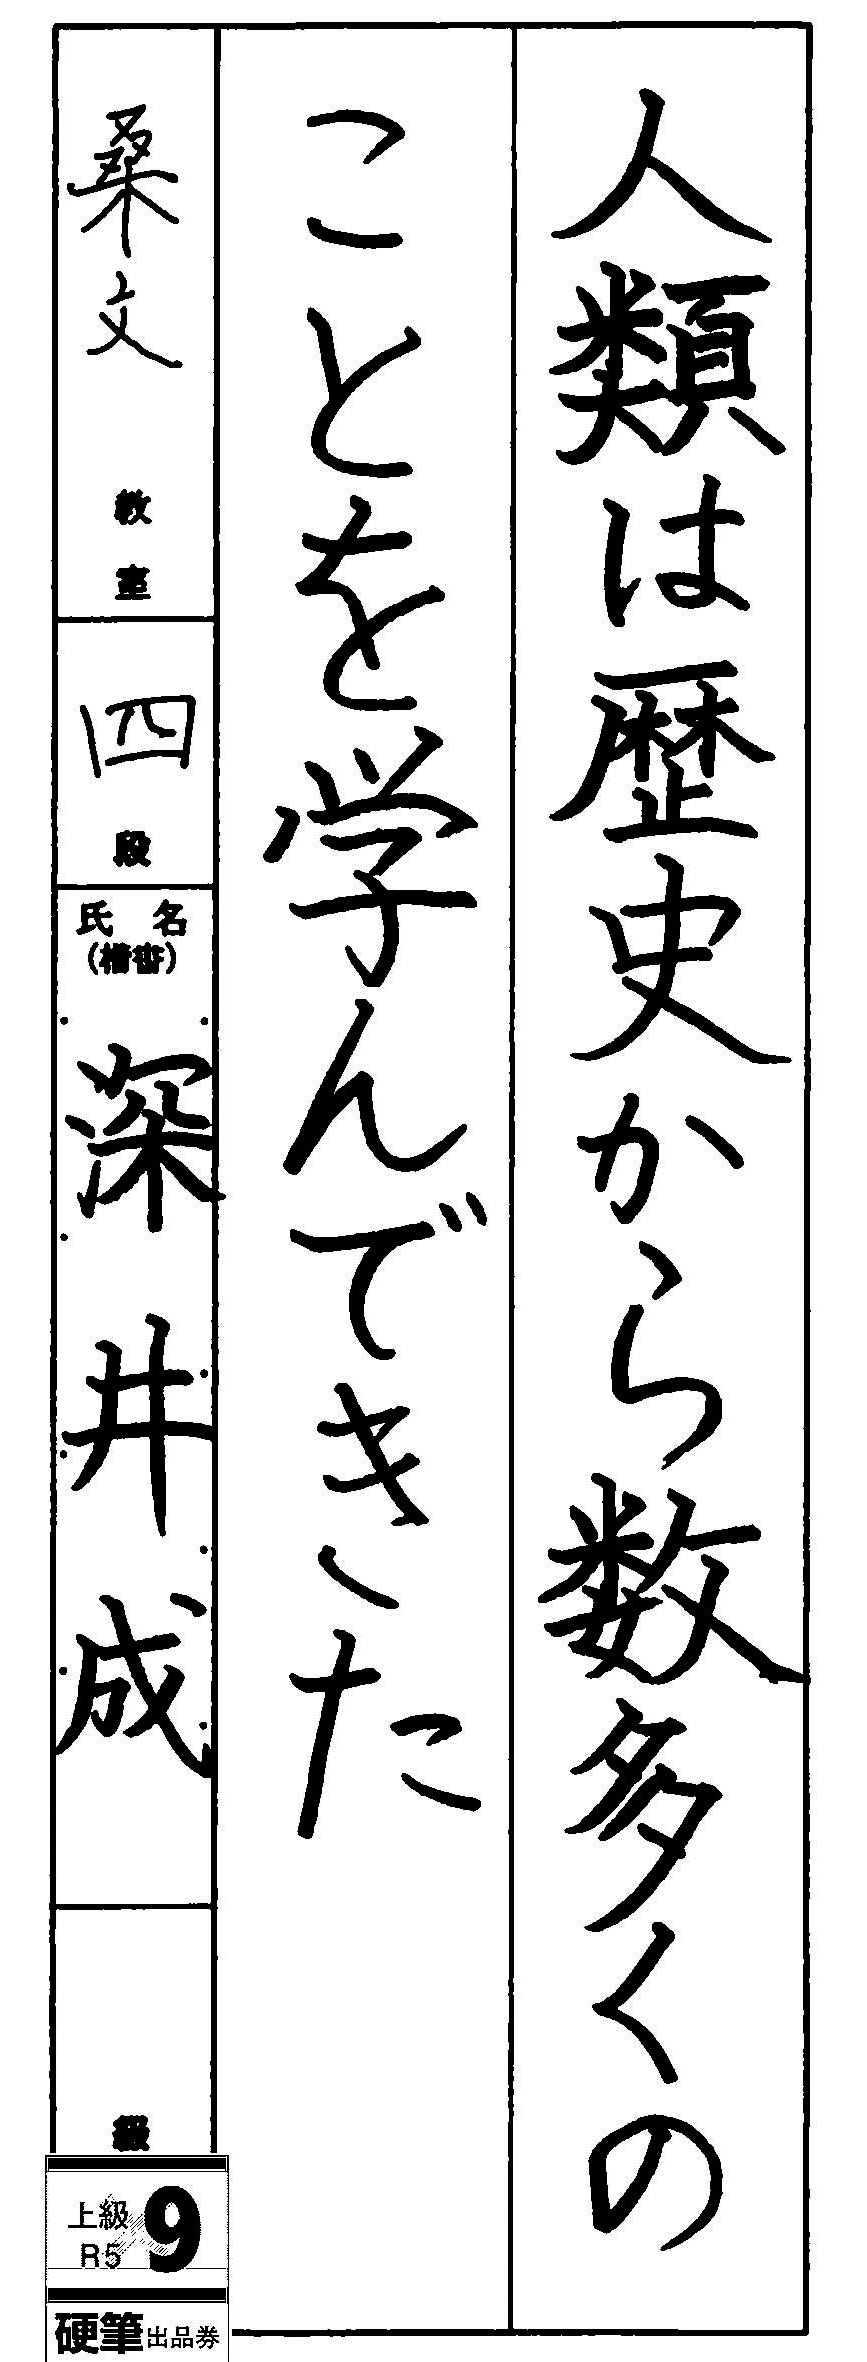 人類は歴史から数多くの
ことを学んできた
桑文 教室
四 段
氏名
(楷書)
深井成
級
上級
R5
9
硬筆出品券